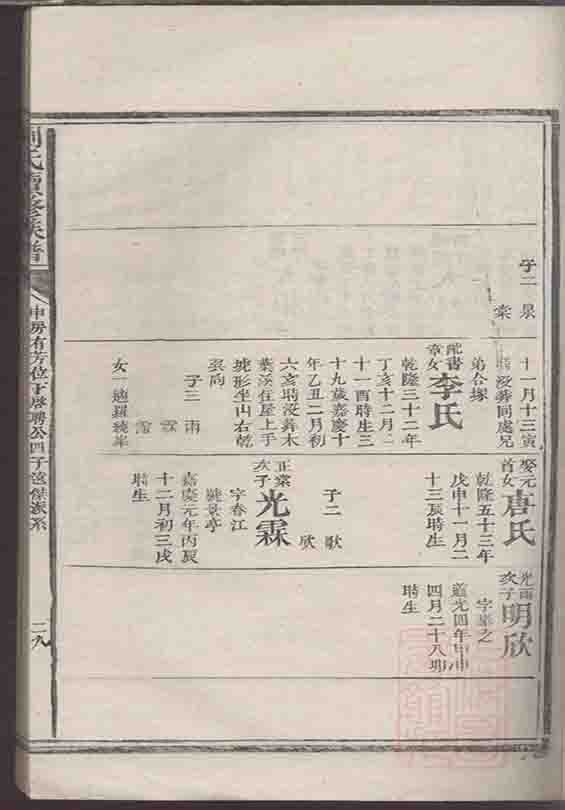 劉氏續修族譜
卷八中房有芳位下啓聘公四子遠傑派系
二八
子二 泉
棠
十一月十三寅
時沒葬同處兄
弟合塚
配書
章女
李氏
乾隆三十二年
丁亥十二月二
十一酉時生三
十九歲嘉慶十
年乙丑二月初
六亥時沒葬木
葉沃住屋上手
坡形坐山右乾
巽向
子三 雨
霖
霑
女一適羅
娶元
首女
唐氏
乾隆五十三年
戊申十一月二
十三辰時生
子二 歌
欣
正棠
次子
光霖
字春江
號景亭
嘉慶元年丙辰
十二月初三戌
時生
光雨
次子
明欣
道光四年甲申
四月二十八卯
時生